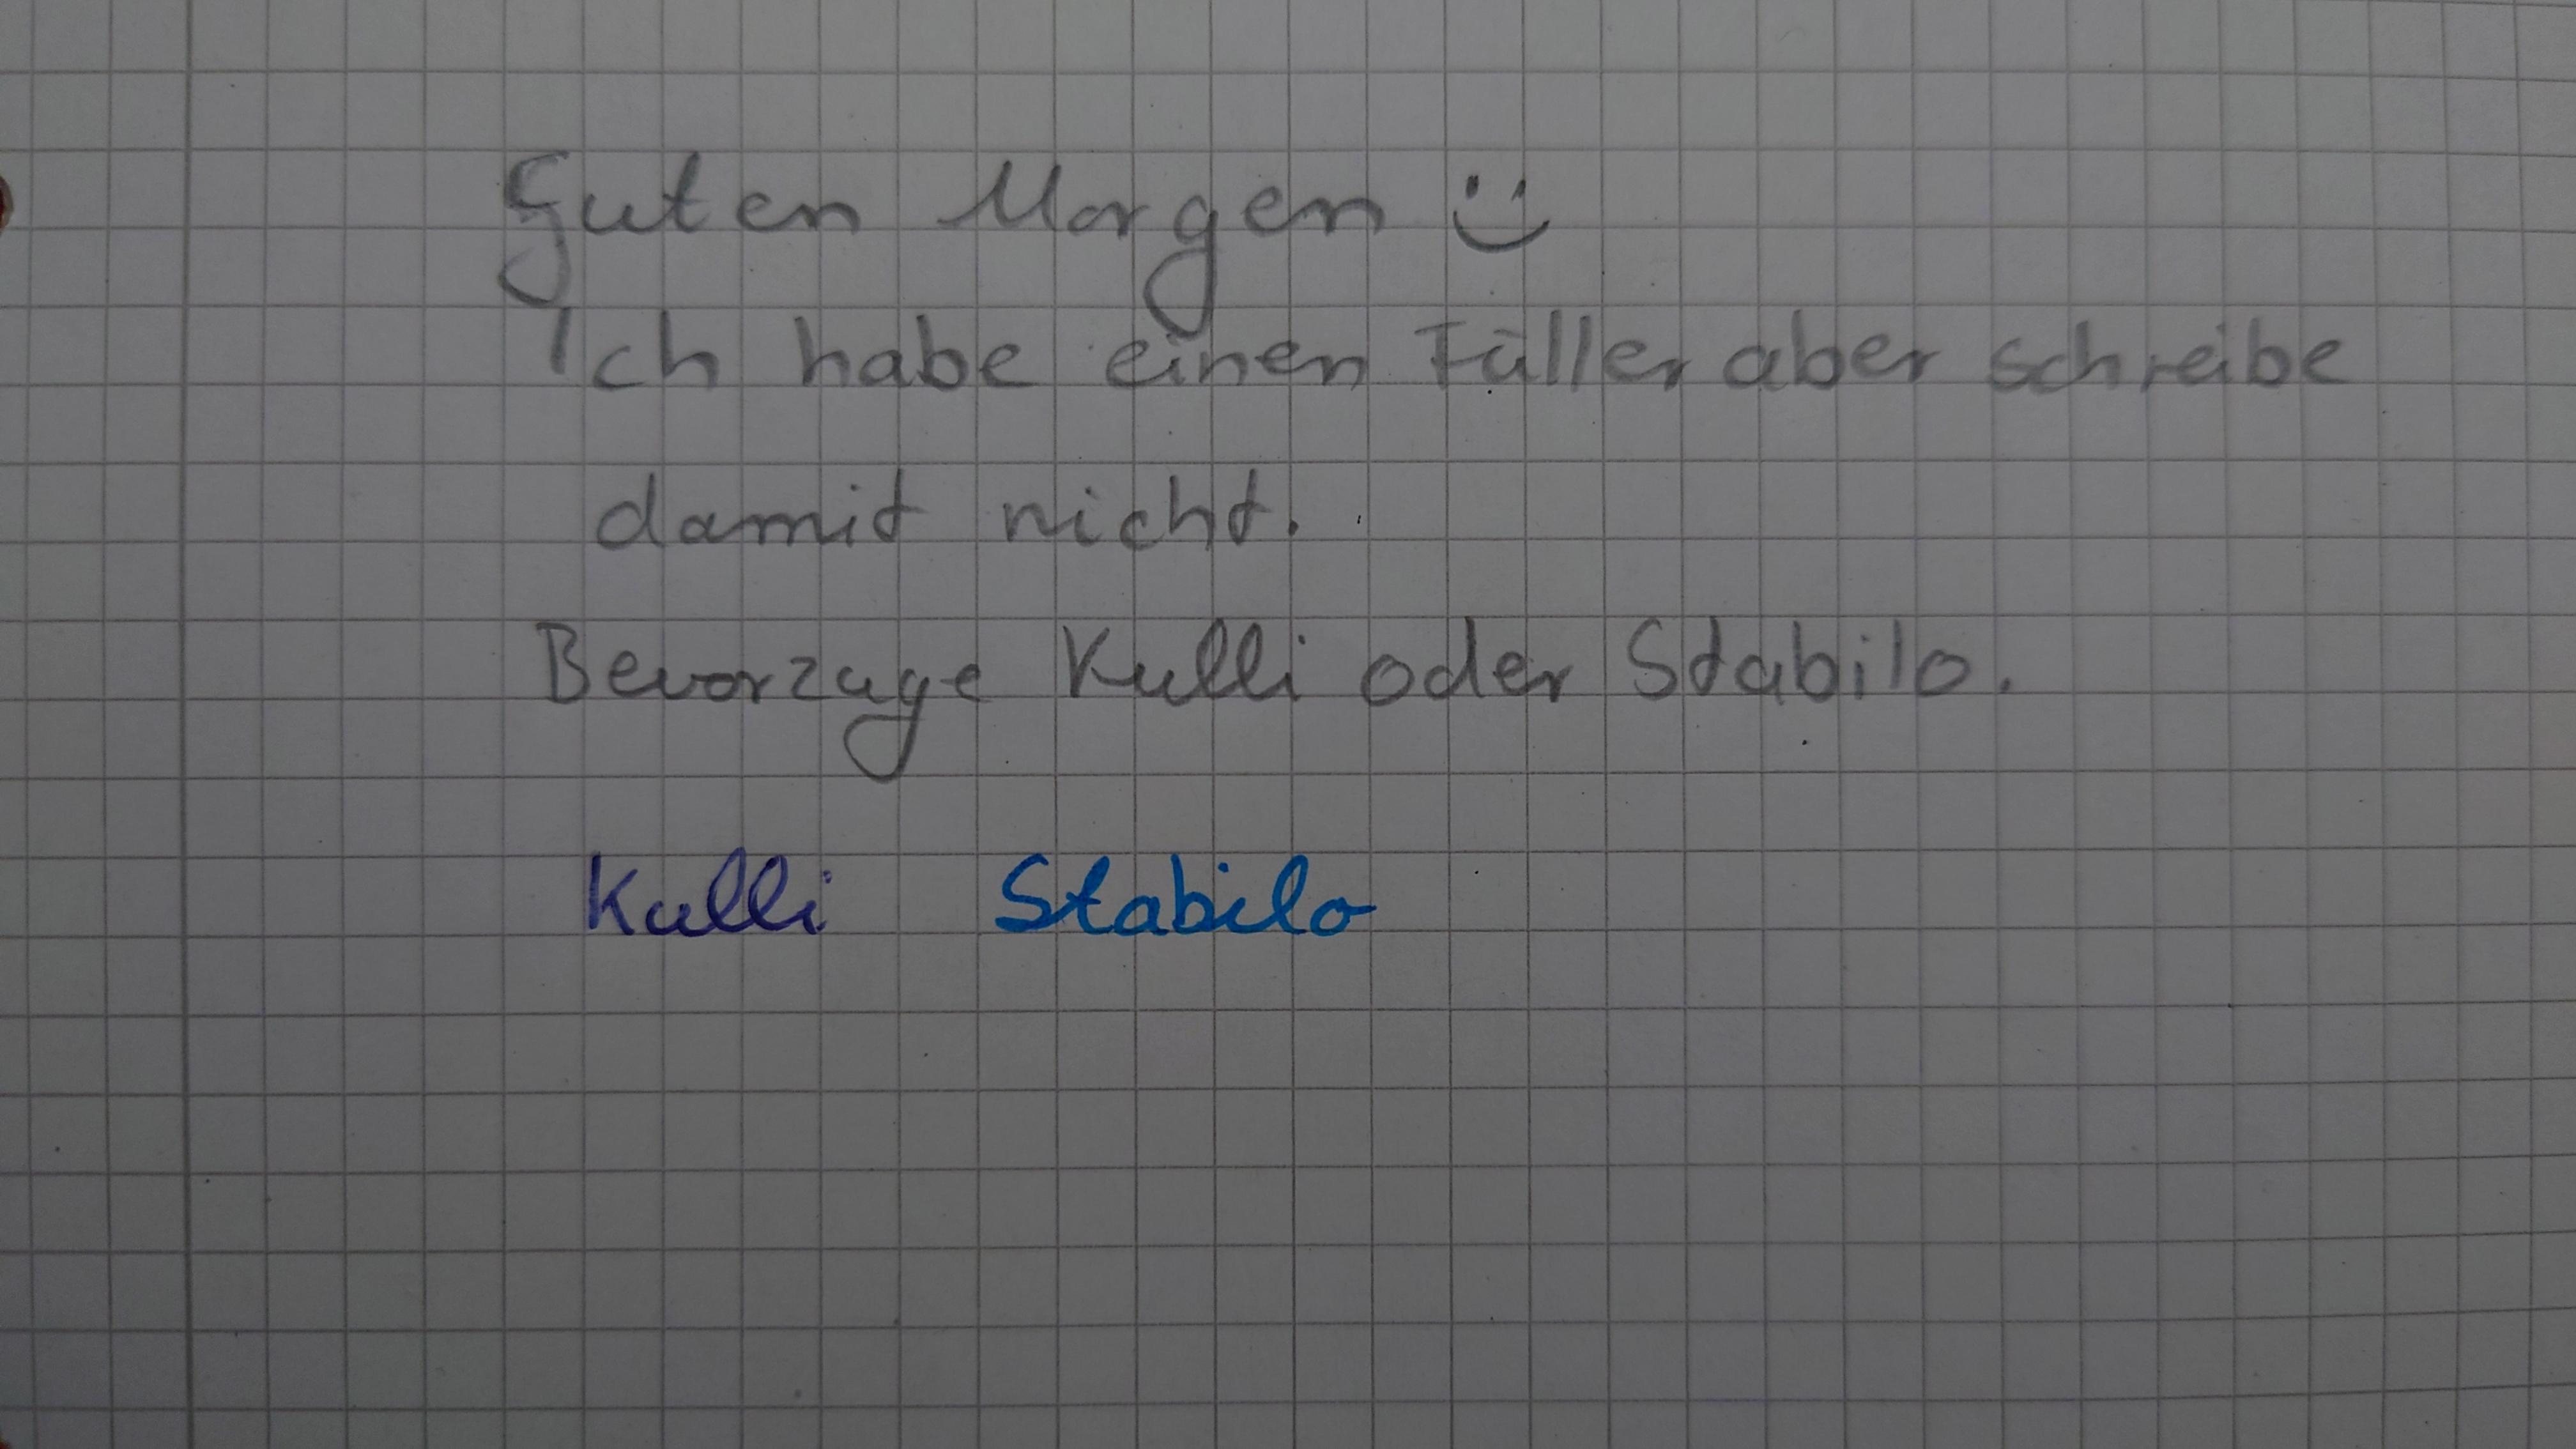 Guten Morgen :)
Ich habe einen Füller aber schreibe
damit nicht.
Bevorzuge Kulli oder Stabilo.
Kulli Stabilo